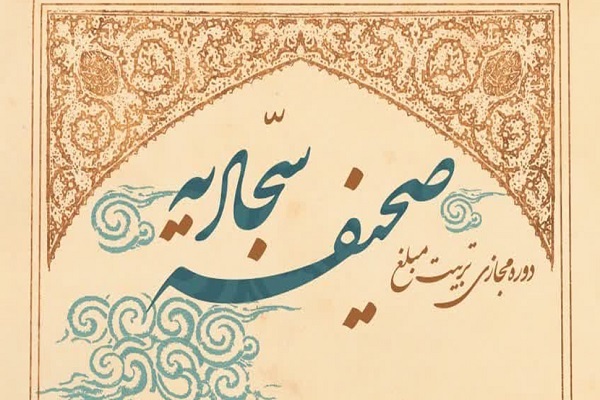 صحیفه
سجّادیه
دوره مجازی تربیت مبلغ